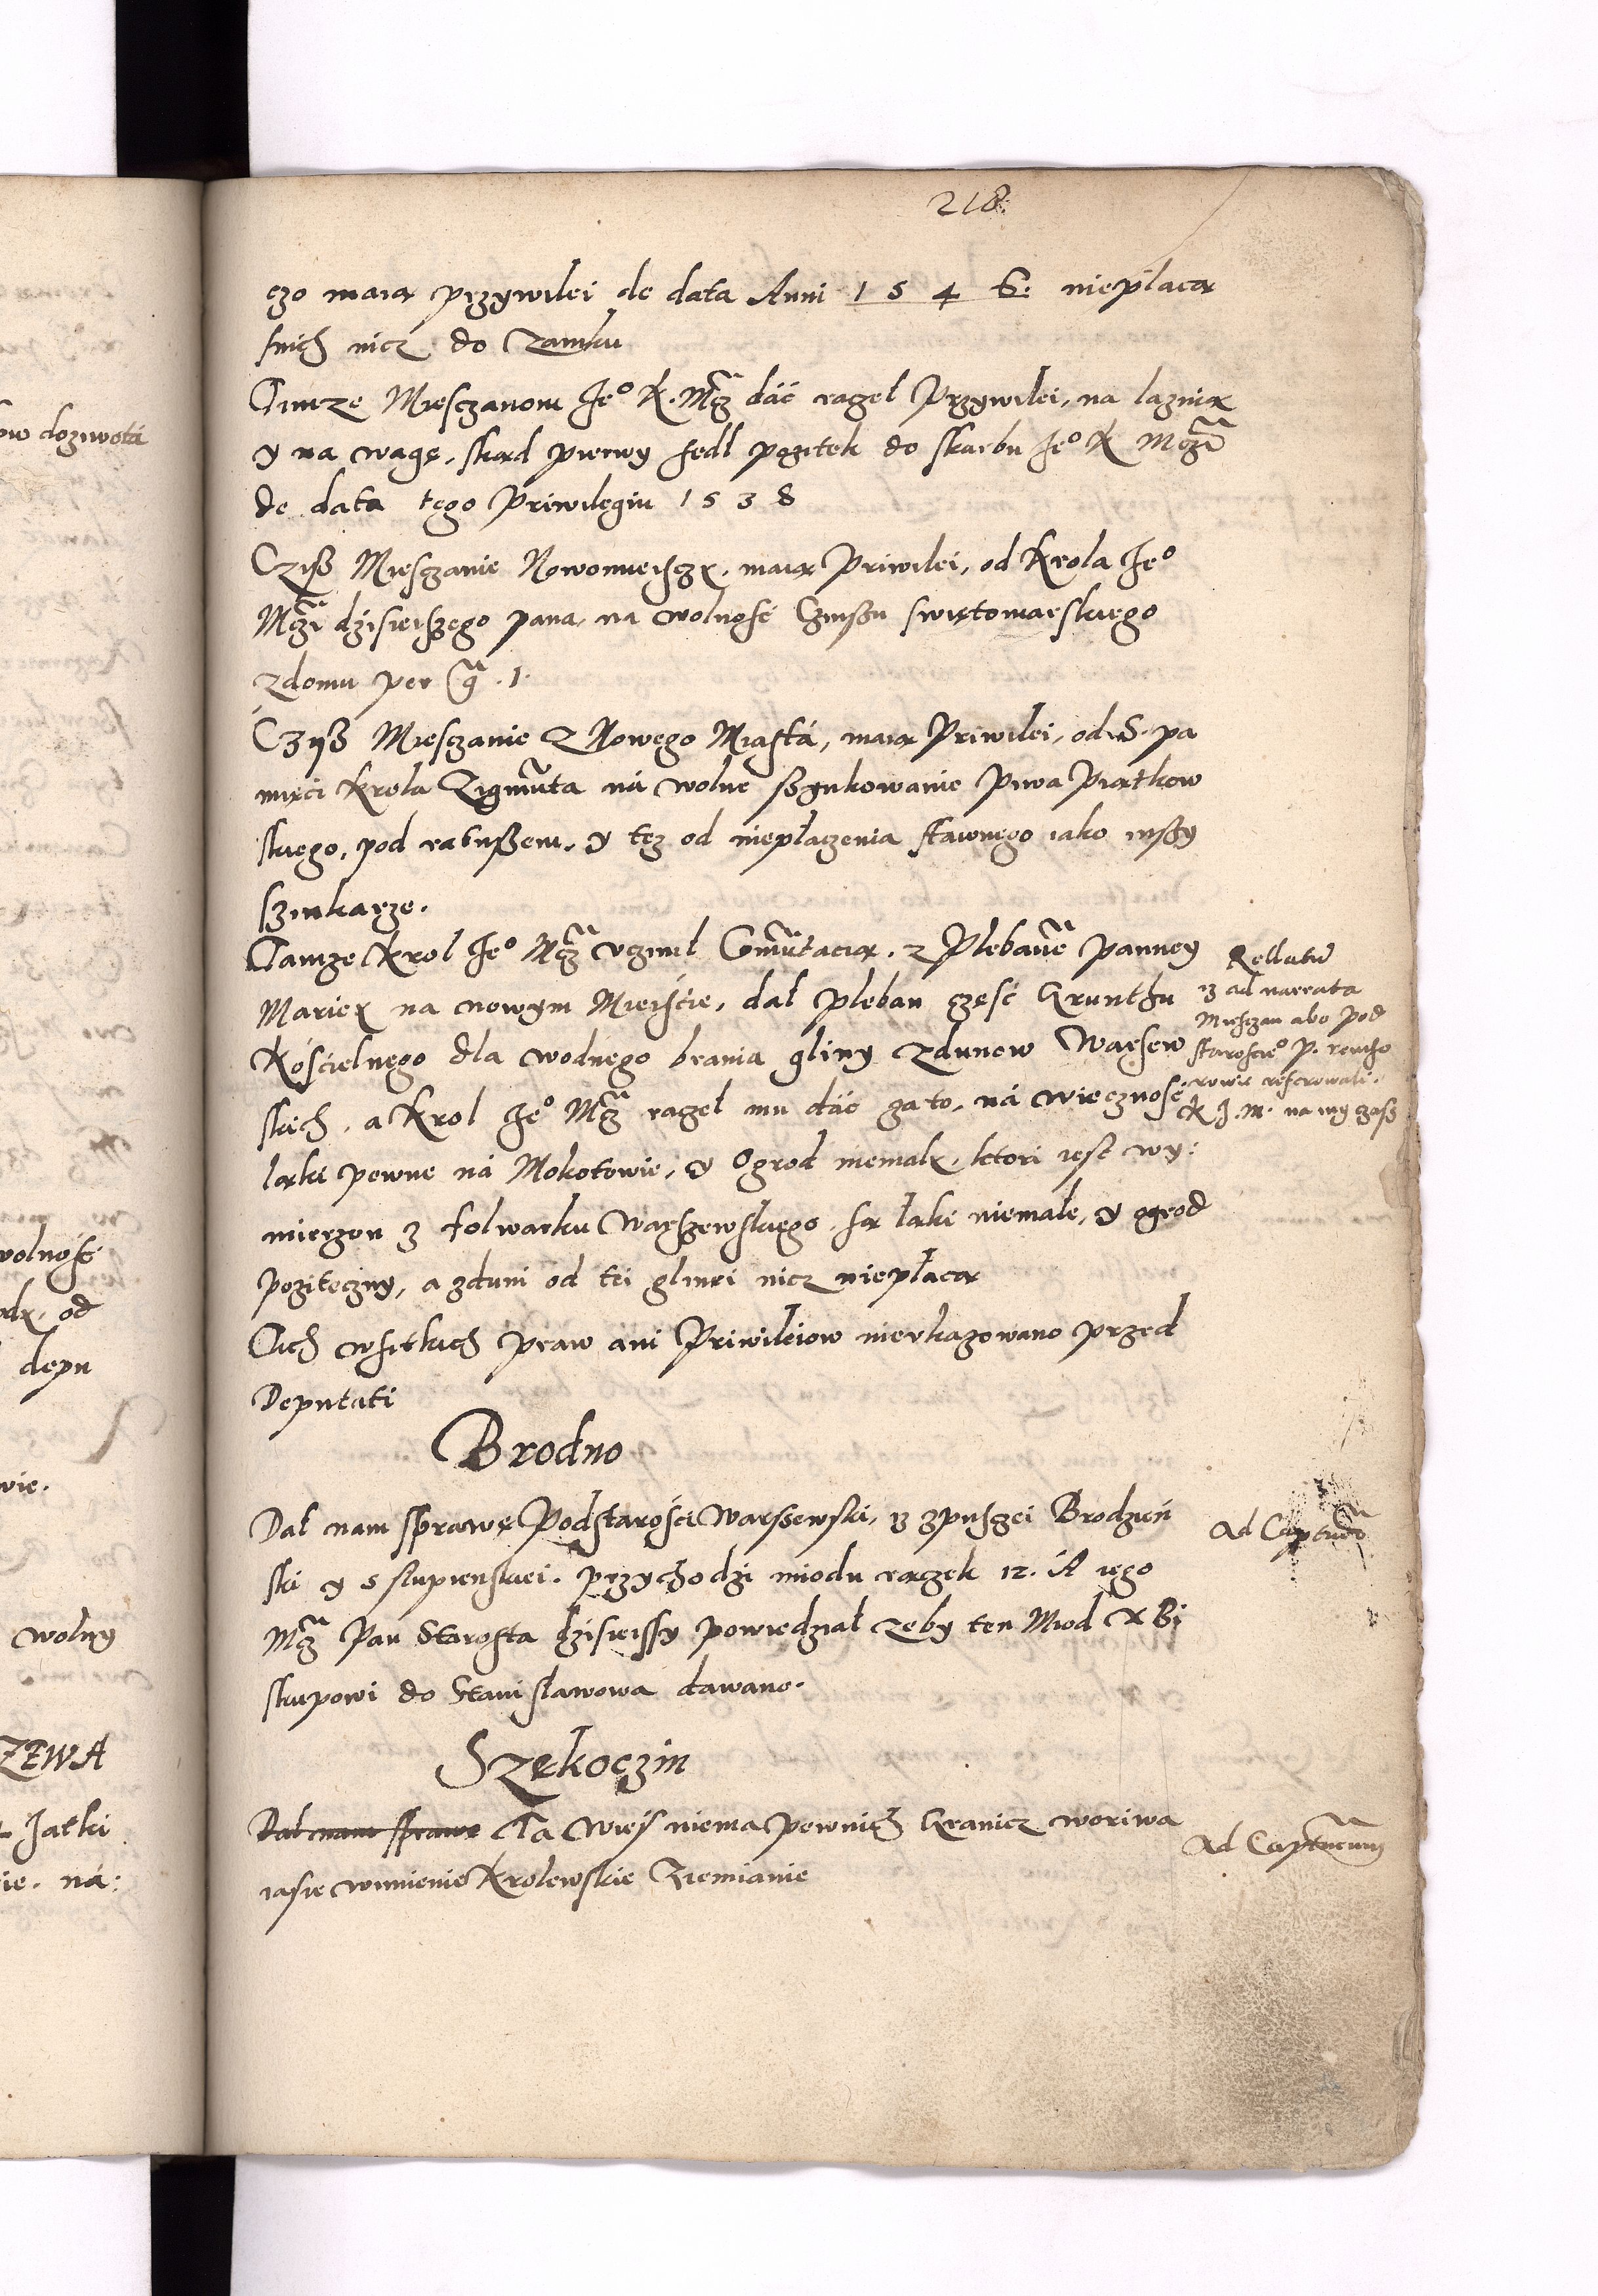 218
czo maią przywilei de data Anni 1546. niepłacą
snich nicz do Zamku
Timze Miesczanom Je° K. Mcz dać raczeł Przywilei, na laznią
y na wagę, skąd pierwy szedl pozitek do skarbu Je° K Mczi
de data tego Priwilegiu 1538
Cziß Miesczanie Nowomieisczy, maią Priwilei, od Krola Je°
Mczi dzisieiszego pana, na wolnosć Czinßu swiętomarskiego
zdomu per g. 1.
Czyß Miesczanie z Nowego Miasta, maią Priwilei, od S. pa
mięci Krola Zigmuta ná wolne szynkowanie piwa Piątkow
skiego, pod ratußem, y też od niepłaczenia stawnego iako inßy
szinkarze.
Tamze Krol Je° Mcz vczinil Comutacią, z Plebane Panney
Mariey na nowym Mieiscie, dał pleban część Grunthu
Kościelnego dla wodnego brania gliny Zdunow Warsew
skich, a Krol Je° Mcz raczeł mu dáć zato, ná wiecznosć
łąki pewne ná Mokotowie, y Ogrod niemały, ktori iest wy:
mierzon z folwarku Warszewskiego, są łąki niemałe, y ogrod
poziteczny, a zduni od tei glinki nicz niepłacą
Tich wszitkich praw ani Priwileiow nievkazowano przed
Deputati
Rellatu
iz ad narrata
Miesczan abo Pod
staroscie° P. 
rowie referowali.
K J. M. na wy
Brodno
Dał nam sprawę Podstarości Warssewski, iz zpuszei Brodzień
ski y Slupienskiei, przychodzi miodu rączek 12. A iego
Mcz Pan Starosta dzisieissy powiedział zeby ten Miod X Bi
skupowi do Stanisławowa dawano.
Ad Capture
Szękoczin
Dał nam sprawę Ta Wieś niema pewnich Granicz woriwa
iasie wimienie Krolewskie Ziemianie
Ad Capturam